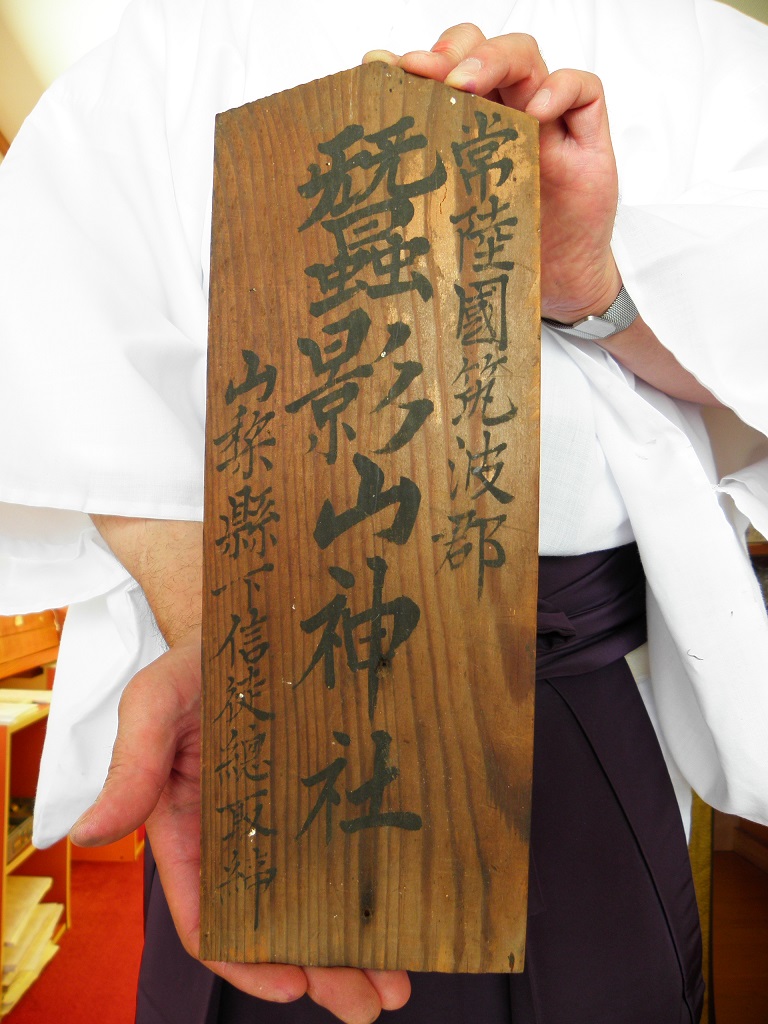 常陸國筑波郡
蠶影山神社
山梨縣下信徒總取締